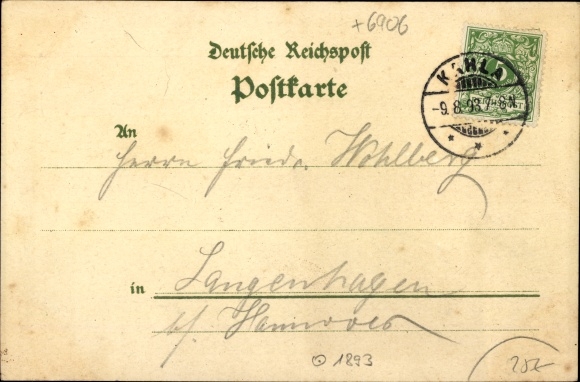 +6906
Deutsche Reichspost
Postkarte
KAHLA
-9.8.93.7-8N.
5
An
Herrn Friedr. Wohlberg
in
Langenhagen
b/ Hannover
⊙ 1893